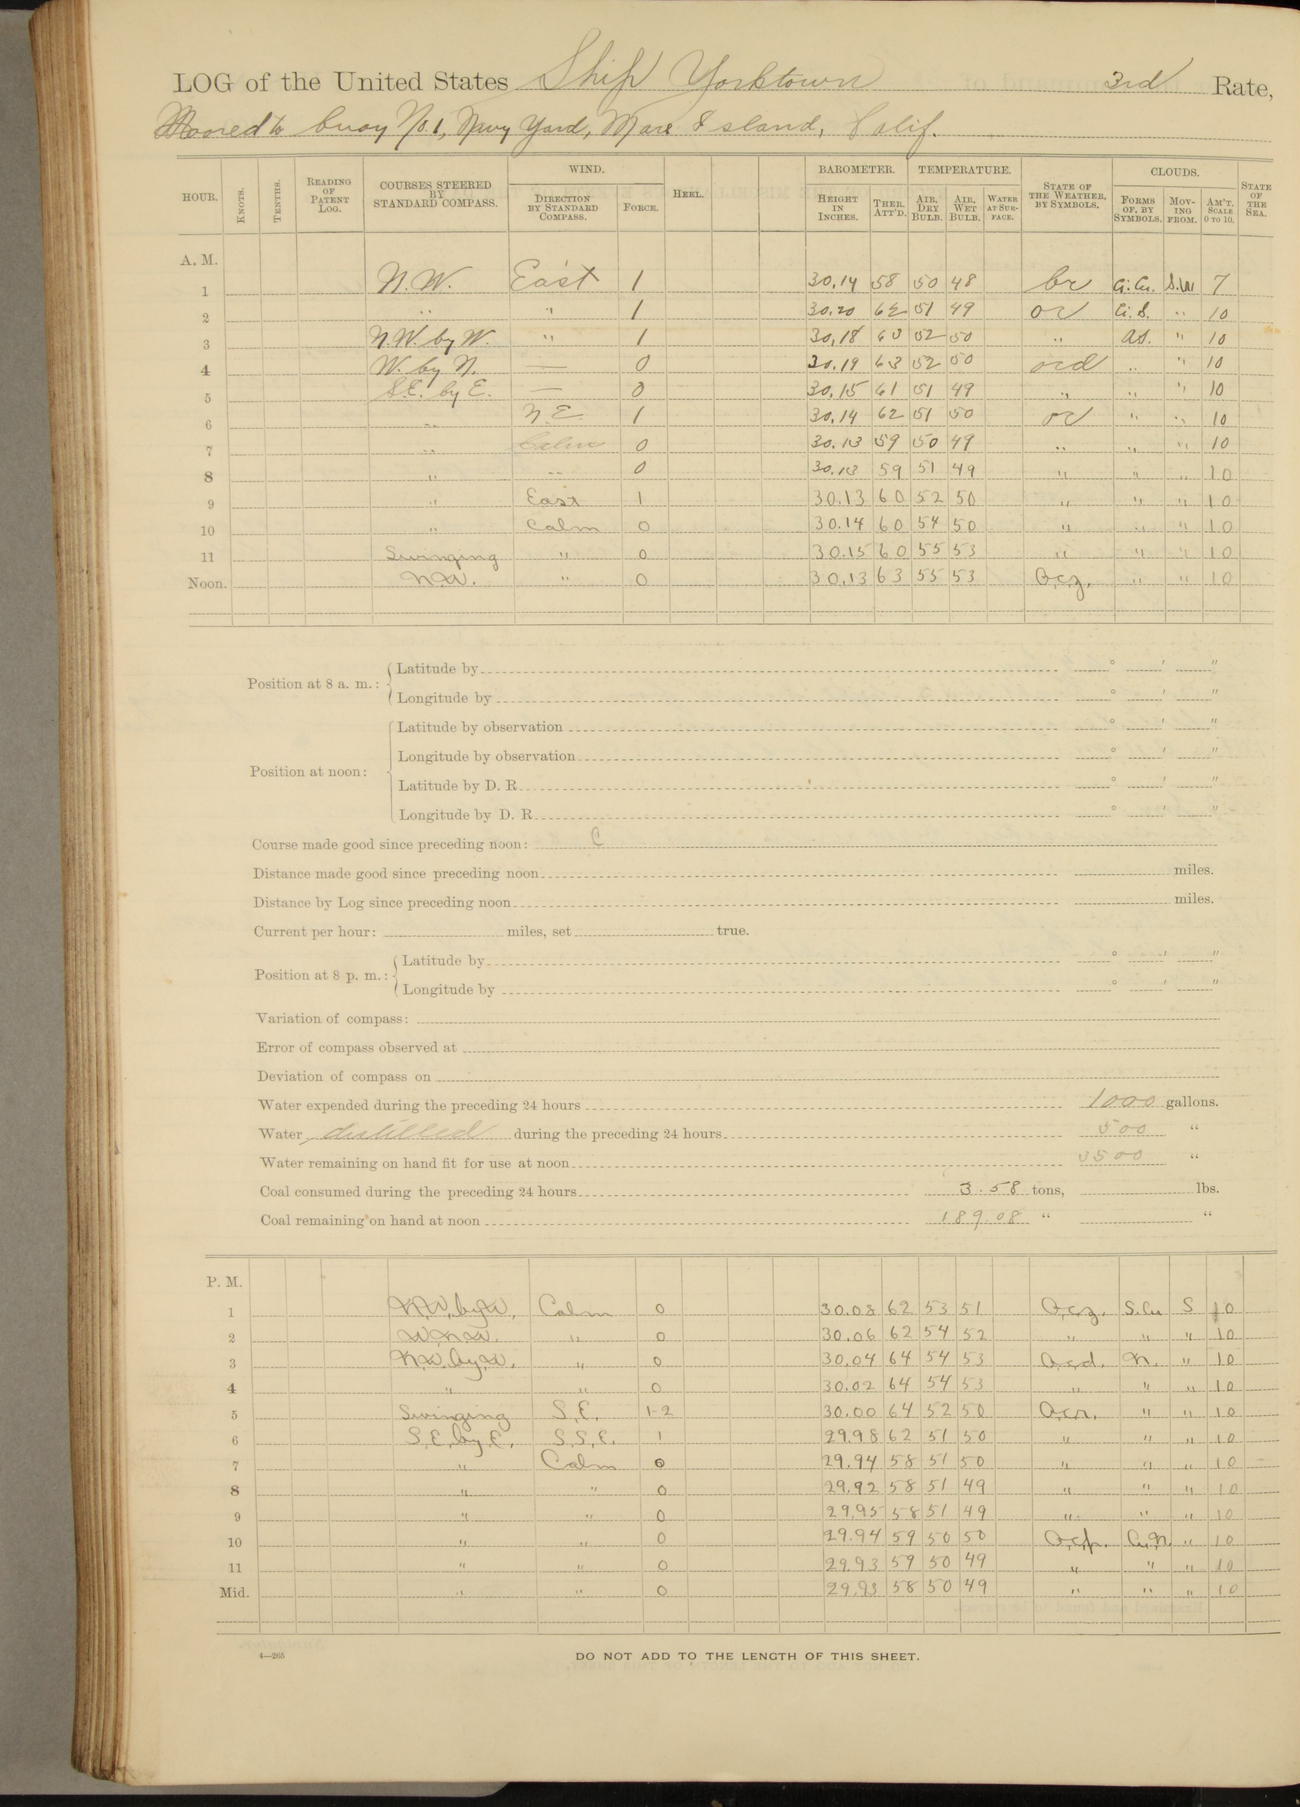 LOG of the United States Ship Yorktown 3rd Rate,
Moored to buoy No. 1, Navy Yard, Mare Island, Calif.
HOUR. KNOTS. TENTHS. READING OF PATENT LOG. COURSES STEERED BY STANDARD COMPASS. WIND. DIRECTION BY STANDARD COMPASS. FORCE. HEEL. BAROMETER. HEIGHT IN INCHES. THER. ATT'D. TEMPERATURE. AIR, DRY BULB. AIR, WET BULB. WATER AT SUR-FACE. STATE OF THE WEATHER, BY SYMBOLS. CLOUDS. FORMS OF, BY SYMBOLS. MOV-ING FROM. AM'T. SCALE 0 TO 10. STATE OF THE SEA.
A. M.
1 N.W. East 1 30.14 58 50 48 bc Ci.Cu. S.W 7
2 " " 1 30.20 62 51 49 oc Ci.S. " 10
3 N.W. by W. " 1 30.18 63 52 50 " As. " 10
4 W. by N. — 0 30.19 63 52 50 ocd " " 10
5 S.E. by E. — 0 30.15 61 51 49 " " " 10
6 " N.E. 1 30.14 62 51 50 oc " " 10
7 " Calm 0 30.13 59 50 49 " " " 10
8 " " 0 30.13 59 51 49 " " " 10
9 " East 1 30.13 60 52 50 " " " 10
10 " Calm 0 30.14 60 54 50 " " " 10
11 Swinging " 0 30.15 60 55 53 " " " 10
Noon. N.W. " 0 30.13 63 55 53 O.c.z. " " 10
Position at 8 a. m.: Latitude by ° ′ ″
Longitude by ° ′ ″
Position at noon: Latitude by observation ° ′ ″
Longitude by observation ° ′ ″
Latitude by D. R. ° ′ ″
Longitude by D. R. ° ′ ″
Course made good since preceding noon: C
Distance made good since preceding noon miles.
Distance by Log since preceding noon miles.
Current per hour: miles, set true.
Position at 8 p. m.: Latitude by ° ′ ″
Longitude by ° ′ ″
Variation of compass:
Error of compass observed at
Deviation of compass on
Water expended during the preceding 24 hours 1000 gallons.
Water distilled during the preceding 24 hours 500 "
Water remaining on hand fit for use at noon 3500 "
Coal consumed during the preceding 24 hours 3.58 tons, lbs.
Coal remaining on hand at noon 189.08 " "
P. M.
1 N.W. by W. Calm 0 30.08 62 53 51 O.c.z. S.Cu S 10
2 W.N.W. " 0 30.06 62 54 52 " " " 10
3 N.W. by W. " 0 30.04 64 54 53 O.c.d. N. " 10
4 " " 0 30.02 64 54 53 " " " 10
5 Swinging S.E. 1-2 30.00 64 52 50 O.c.r. " " 10
6 S.E. by E. S.S.E. 1 29.98 62 51 50 " " " 10
7 " Calm 0 29.94 58 51 50 " " " 10
8 " " 0 29.92 58 51 49 " " " 10
9 " " 0 29.95 58 51 49 " " " 10
10 " " 0 29.94 59 50 50 O.c.p. Cu.N. " 10
11 " " 0 29.93 59 50 49 " " " 10
Mid. " " 0 29.93 58 50 49 " " " 10
4—265
DO NOT ADD TO THE LENGTH OF THIS SHEET.